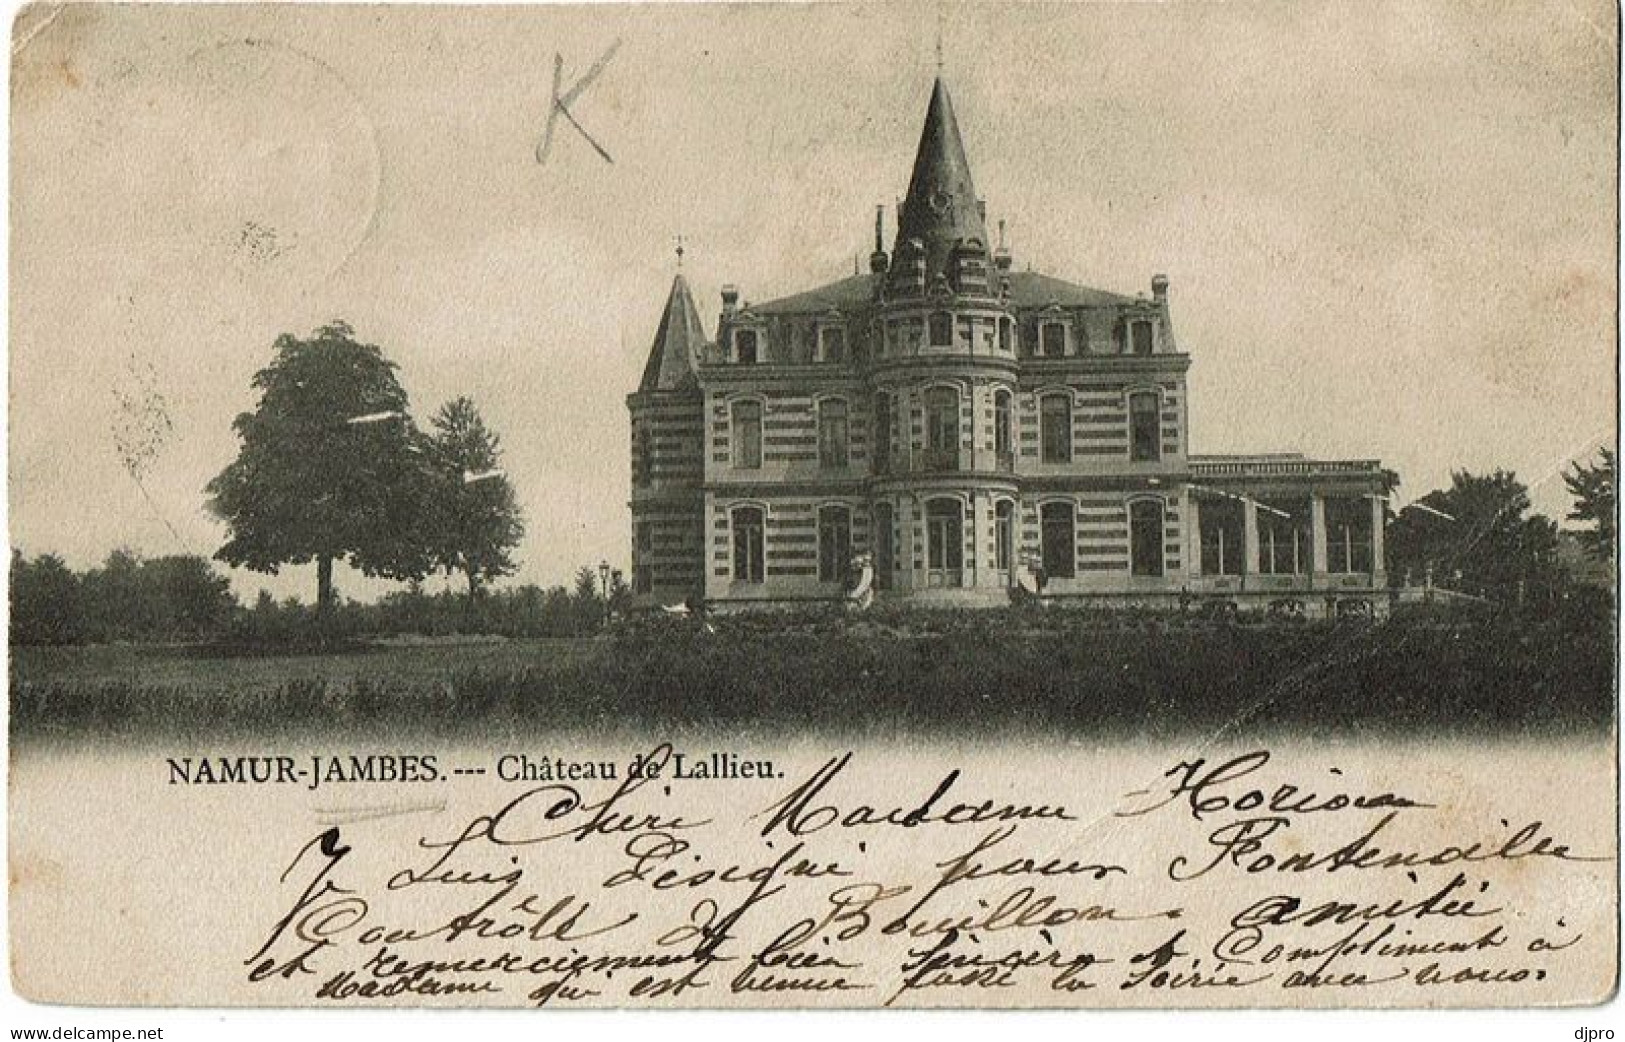 K
NAMUR-JAMBES. --- Château de Lallieu.
Chère Madame Horion
Je suis désigné pour Fontenoille
Contrôle de Bouillon. amitié
et remerciement bien sincère et Compliment à
Madame qui est venue passé la soirie avec vous.
delcampe.net
djpro